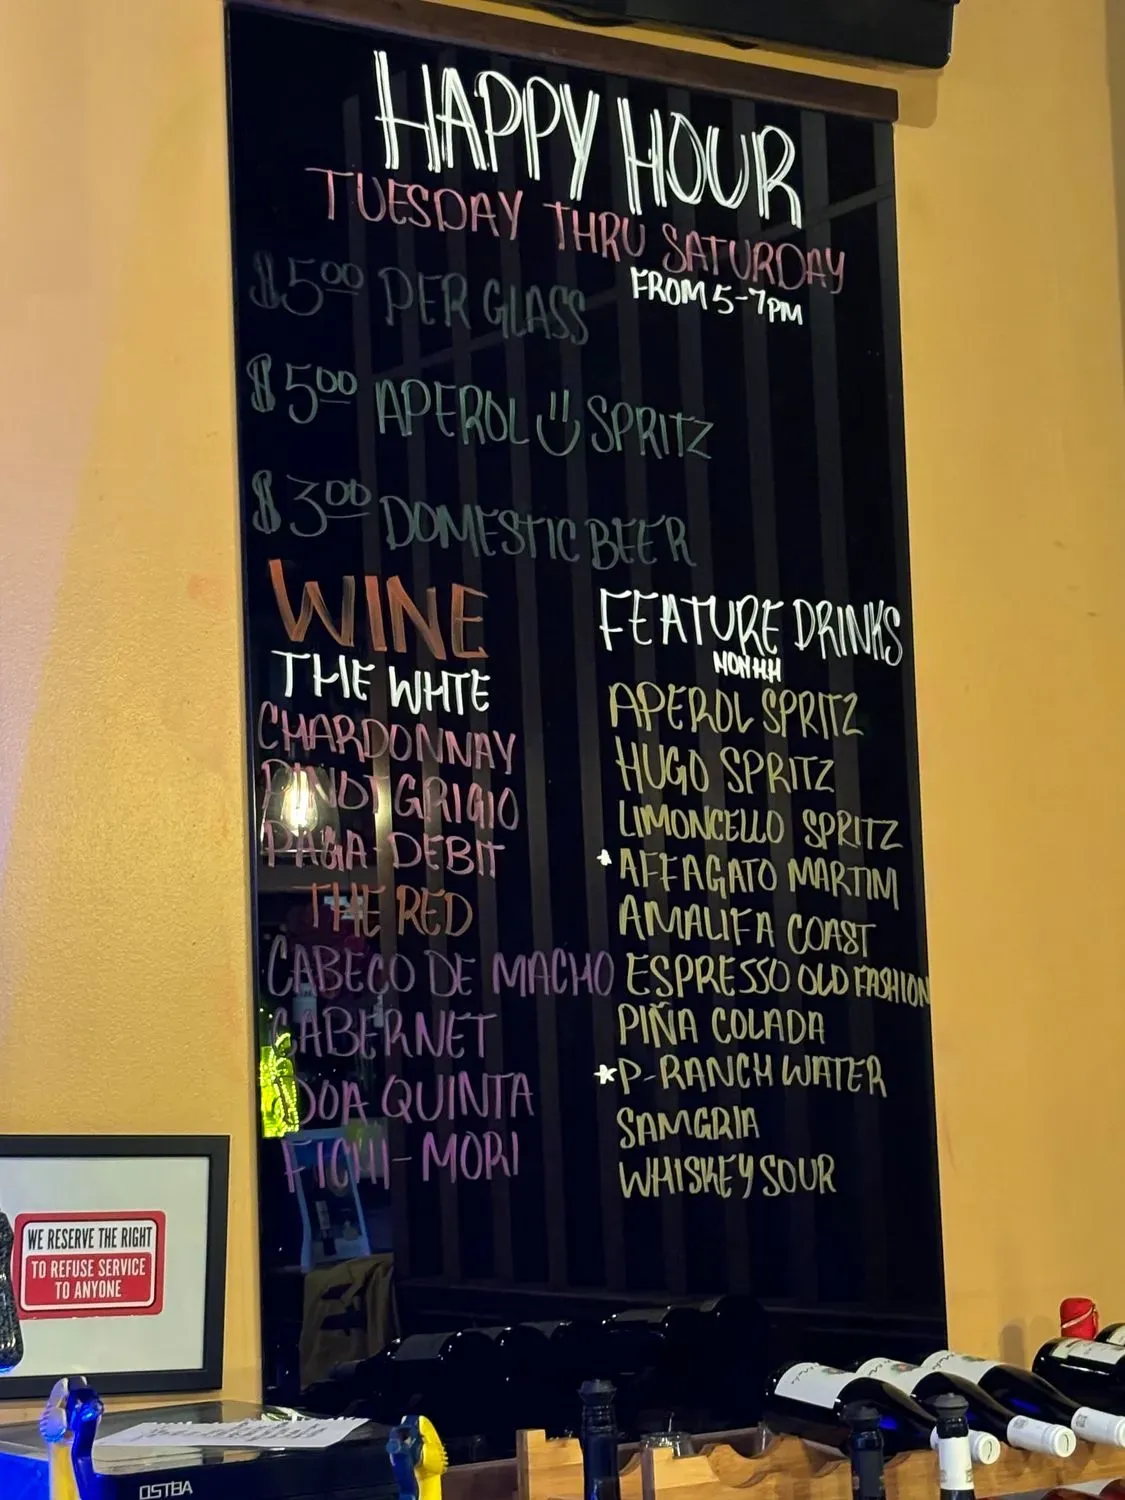 HAPPY HOUR
TUESDAY THRU SATURDAY
FROM 5-7PM
$5.00 PER GLASS
$5.00 APEROL SPRITZ
$3.00 DOMESTIC BEER
WINE
THE WHTE
CHARDONNAY
PINOT GRIGIO
PAGA DEBIT
THE RED
CABECO DE MACHO
CABERNET
DOA QUINTA
FICHI-MORI
FEATURE DRINKS
NON HH
APEROL SPRITZ
HUGO SPRITZ
LIMONCELLO SPRITZ
*AFFAGATO MARTINI
AMALIFA COAST
ESPRESSO OLD FASHION
PIÑA COLADA
*P-RANCH WATER
SAMGRIA
WHISKEY SOUR
WE RESERVE THE RIGHT
TO REFUSE SERVICE
TO ANYONE
OSTBA